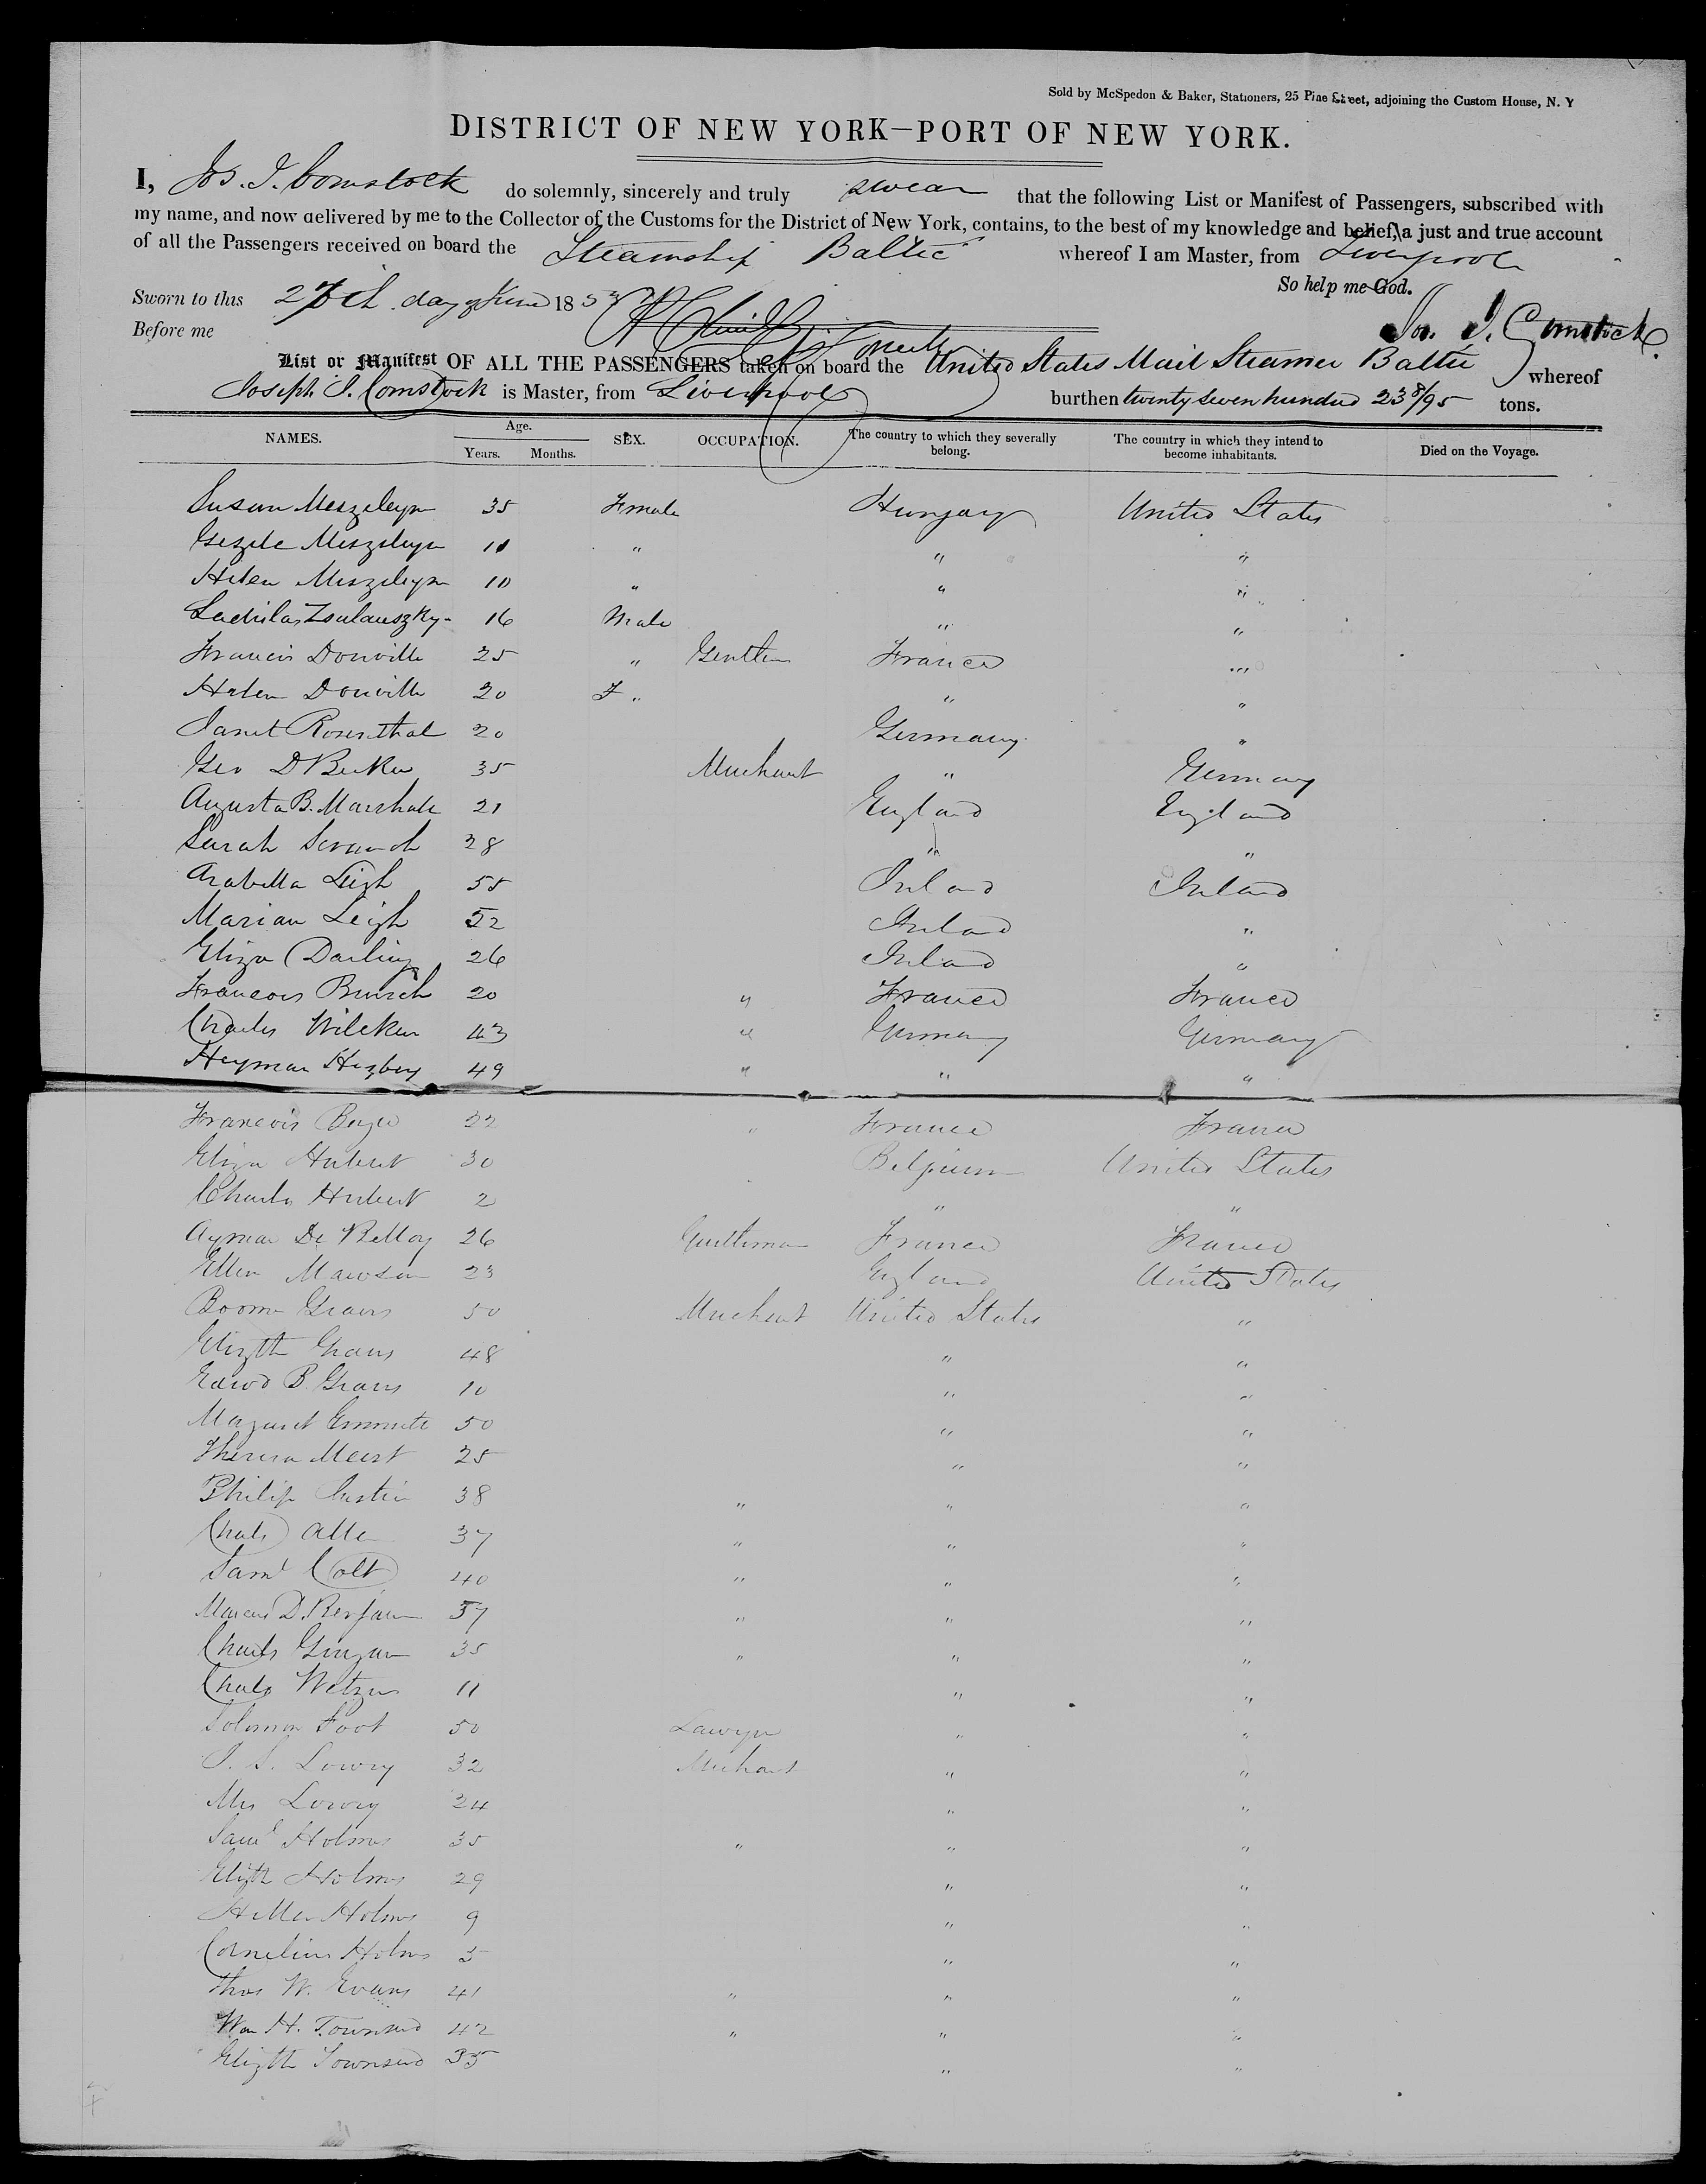 Sold by McSpedon & Baker, Stationers, 25 Pine Street, adjoining the Custom House, N. Y
DISTRICT OF NEW YORK—PORT OF NEW YORK.
I, Jos. J. Comstock do solemnly, sincerely and truly swear that the following List or Manifest of Passengers, subscribed with
my name, and now delivered by me to the Collector of the Customs for the District of New York, contains, to the best of my knowledge and belief, a just and true account
of all the Passengers received on board the Steamship Baltic whereof I am Master, from Liverpool
So help me God.
Sworn to this 27th day of June 1853
Before me
Jos. J. Comstock
List or Manifest OF ALL THE PASSENGERS taken on board the United States Mail Steamer Baltic whereof
Joseph J. Comstock is Master, from Liverpool burthen twenty seven hundred 23 8/95 tons.
NAMES. Age. Years. Months. SEX. OCCUPATION. The country to which they severally belong. The country in which they intend to become inhabitants. Died on the Voyage.
Susan Meszlenyi 35 Female Hungary United States
Meszlenyi 11 " " "
Helen Meszlenyi 10 " " "
Ladislas Zsulavszky 16 Male " "
Francis Donville 25 " Gentlm France "
Helen Donville 20 F " " "
Janet Rosenthal 20 Germany "
Geo D Becker 35 Merchant " Germany
Augusta B. Marshall 21 England England
Sarah 28 " "
Arabella Leigh 55 Ireland Ireland
Marian Leigh 52 Ireland "
Eliza Darling 26 Ireland "
Francois 20 " France France
Charles Wilcken 43 " Germany Germany
Heyman 49 " " "
Francois 22 " France France
Eliza Hubert 30 Belgium United States
Charles Hubert 2 " "
Aymar De Belloy 26 Gentleman France France
Ellen Mawson 23 England United States
Graves 50 Merchant United States "
Elizth Graves 48 " "
Edwd B. Graves 10 " "
Margaret 50 " "
Theresa 25 " "
Philip 38 " " "
Chals 37 " " "
Saml Colt 40 " " "
Marcus D. Benjamin 57 " " "
Charls 35 " " "
Chals 11 " "
Solomon Foot 50 Lawyer " "
Lowry 32 Merchant " "
Mrs Lowry 24 " "
Saml Holmes 35 " " "
Elizth Holmes 29 " "
Holmes 9 " "
Cornelius Holms 5 " "
Thos W. Evans 41 " " "
Wm H. Townsend 42 " " "
Elizth Townsend 35 " "